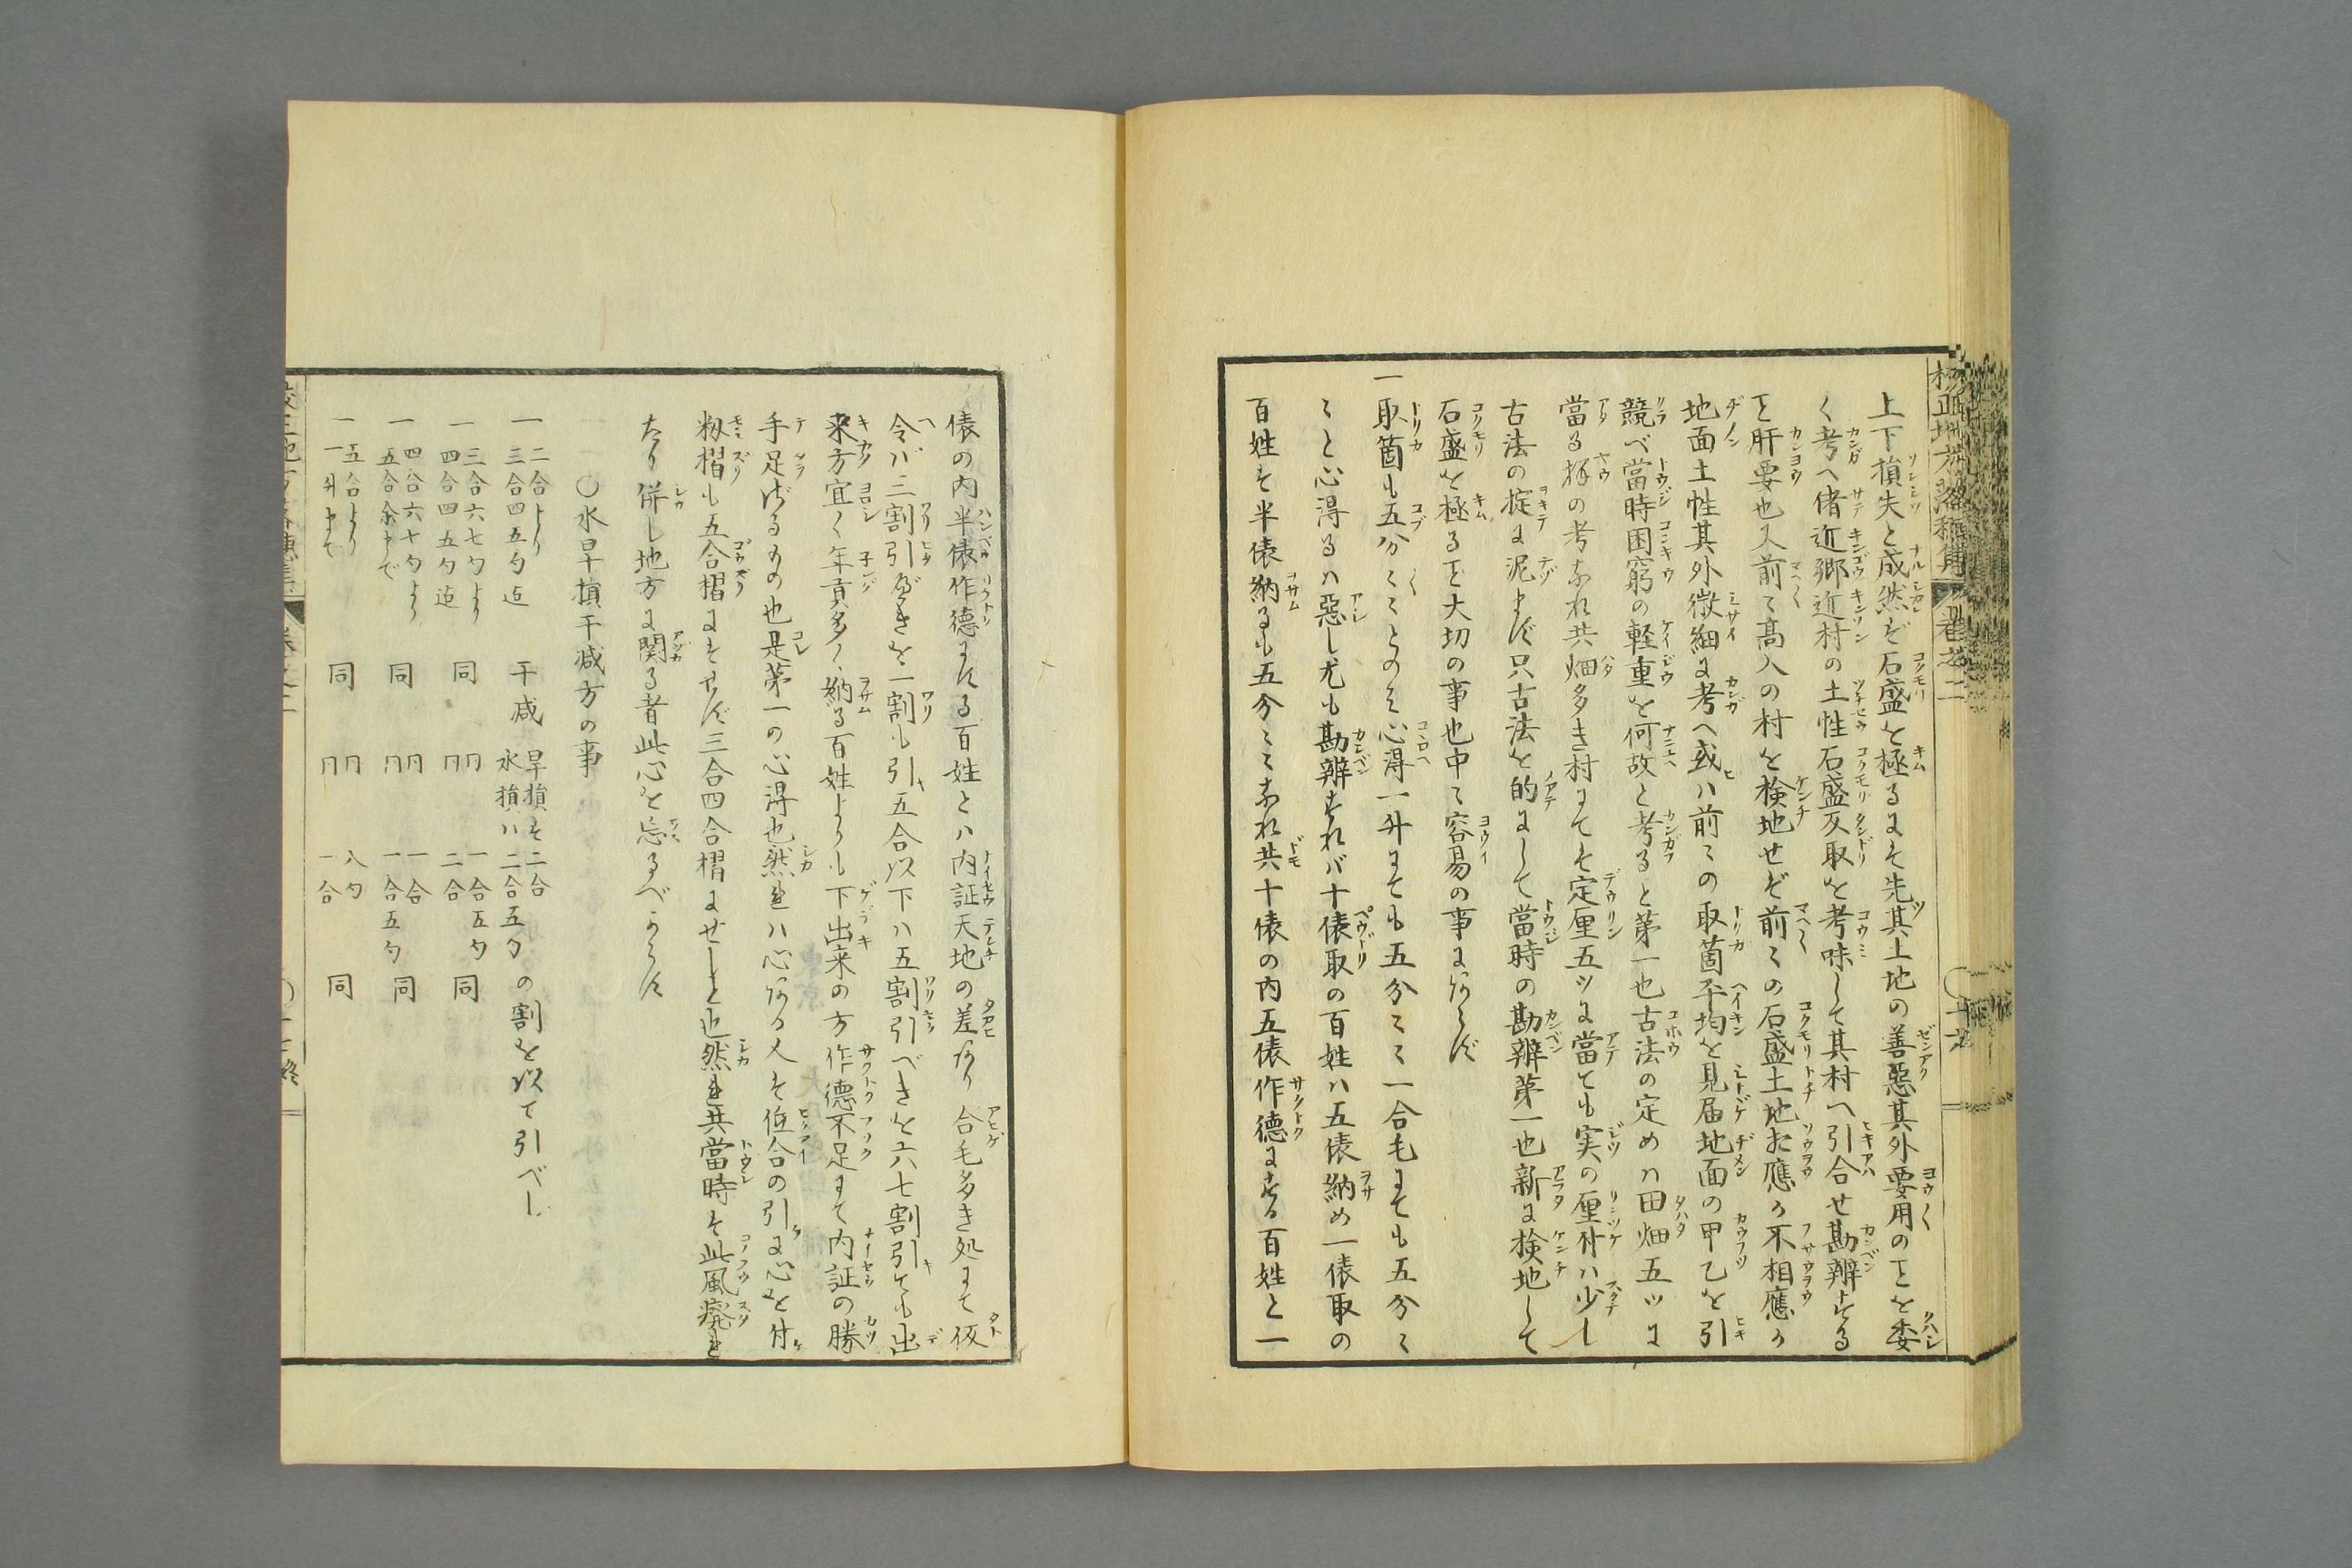 上下損失と成然ぞ石盛を極るにそ先其上地の善惡其外要用のヿを委
く考へ偖近郷近村の土性石盛反取を考味して其村へ引合せ勘辨する
ヿ肝要也又前〻髙入の村を検地せぞ前〻の石盛土地相應か不相應か
地面土性其外微細に考へ或ハ前〻の取箇平均を見届地面の甲乙を引
競べ當時困窮の軽重を何故と考ると第一也古法の定めハ田畑五ツに
當る様の考なれ共畑多き村にてそ定厘五ツに當ても実の厘付ハ少し
古法の掟に泥まず只古法を的にして當時の勘辨第一也新に検地して
石盛を極るヿ大切の事也中〻容易の事にあらず
一取箇も五分〻〻とのミ心得一升にても五分〻〻一合毛にても五分〻
〻と心得るハ惡し尤も勘辨すれバ十俵取の百姓ハ五俵納め一俵取の
百姓そ半俵納るも五分〻〻なれ共十俵の内五俵作德にする百姓と一
俵の内半俵作德にする百姓とハ内証天地の差あり合毛多き処にて仮
令ハ三割引べきを一割も引五合以下ハ五割引べきを六七割引ても出
来方宜く年貢多く納る百姓よりも下出来の方作德不足にて内証の勝
手足ざるもの也是第一の心得也然れハ心ある人そ低合の引に心を付
籾摺も五合摺にそせず三合四合摺にせしと也然れ共當時そ此風癈れ
たり併し地方に関る者此心を忘るべからず
○水旱損干減方の事
一 二合より三合四五勺迄 干减 旱損そ二合 水損ハ二合五勺 の割を以て引べし
一 三合六七勺より四合四五勺迄 同 冂冂 一合五勺 二合 同
一 四合六七勺より五合余まで 同 冂冂 一合 一合五勺 同
一 五合より一升まで 同 冂冂 八勺 一合 同